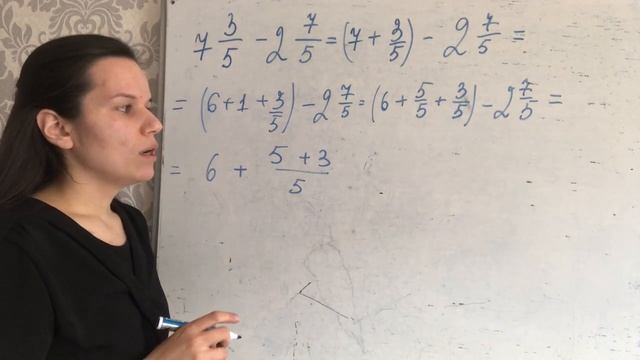 7 3/5 - 2 7/5 = (7 + 3/5) - 2 7/5 =
= (6 + 1 + 3/5) - 2 7/5 = (6 + 5/5 + 3/5) - 2 7/5 =
= 6 + (5 + 3)/5